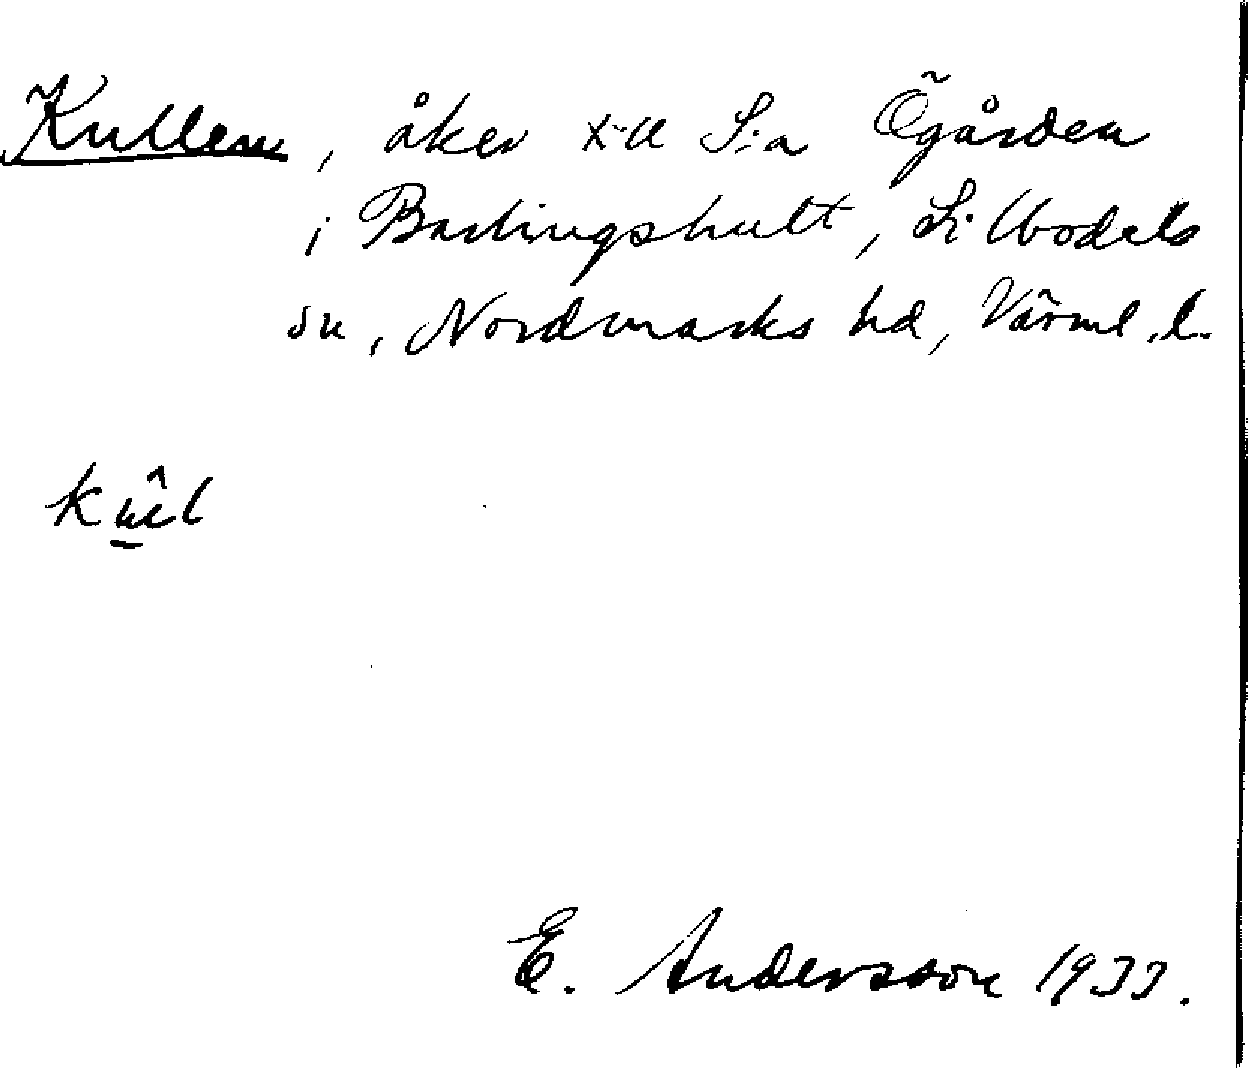 Kullen, åker t. ll S:a Ögården
i Bastingshult, Silbodals
sn, Nordmarks hd, Värml. l.
E. Andersson 1933.